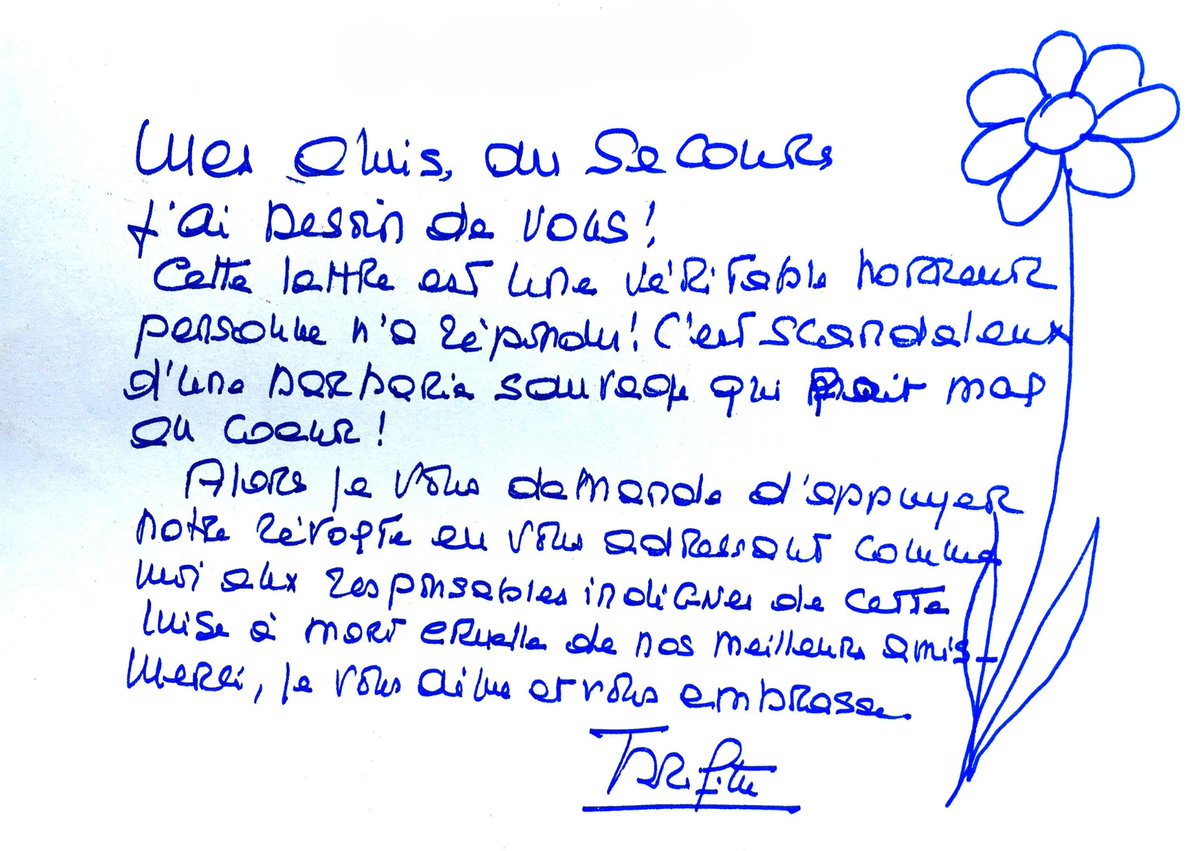 Mes Amis, au Secours
J'ai besoin de vous!
Cette lettre est une véritable horreur
personne n'a répondu! C'est scandaleux
d'une barbarie sauvage qui fait mal
au coeur!
Alors je vous demande d'appuyer
notre révolte en vous adressant comme
moi aux responsables indignes de cette
mise à mort cruelle de nos meilleurs amis_
Merci, je vous aime et vous embrasse.